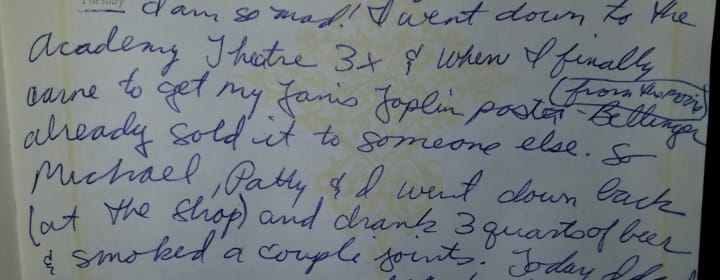 Tuesday
I am so mad! I went down to the
Academy Theatre 3x & when I finally
came to get my Janis Joplin poster (from the movie) - Bellinger
already sold it to someone else. So
Michael, Patty & I went down back
(at the shop) and drank 3 quarts of beer
& smoked a couple joints. Today